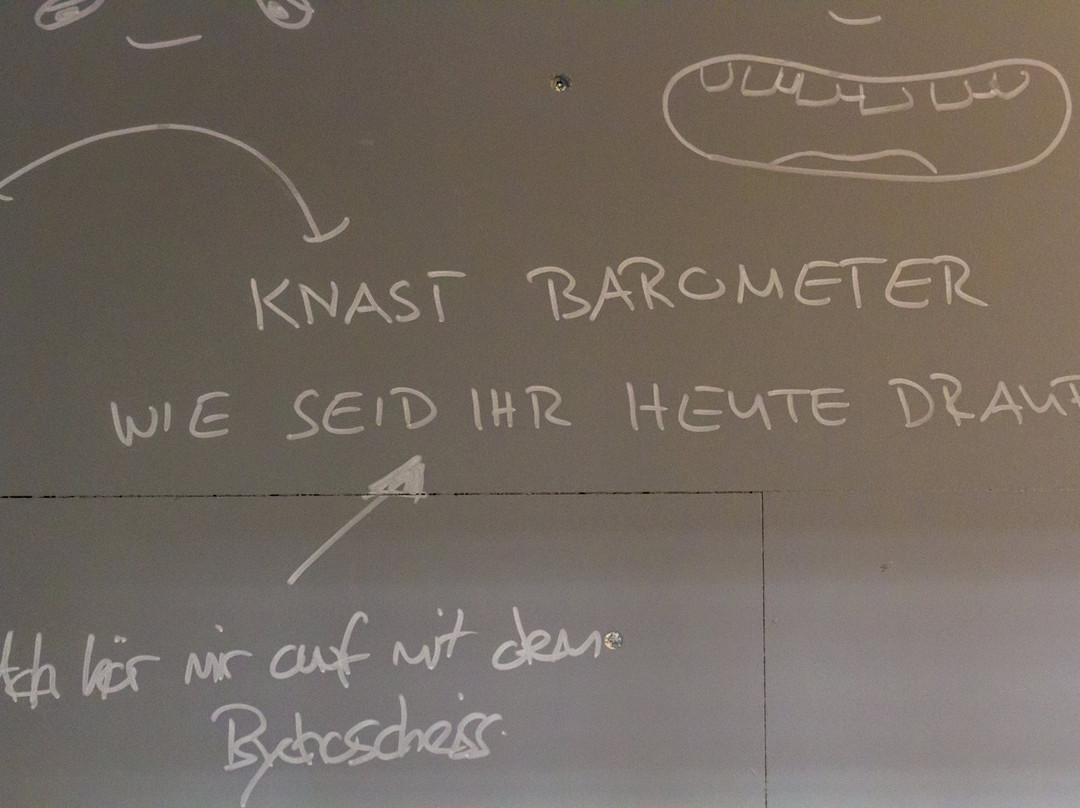 KNAST BAROMETER
WIE SEID IHR HEUTE DRAUF
Ach hör mir auf mit dem
Psychoscheiss.